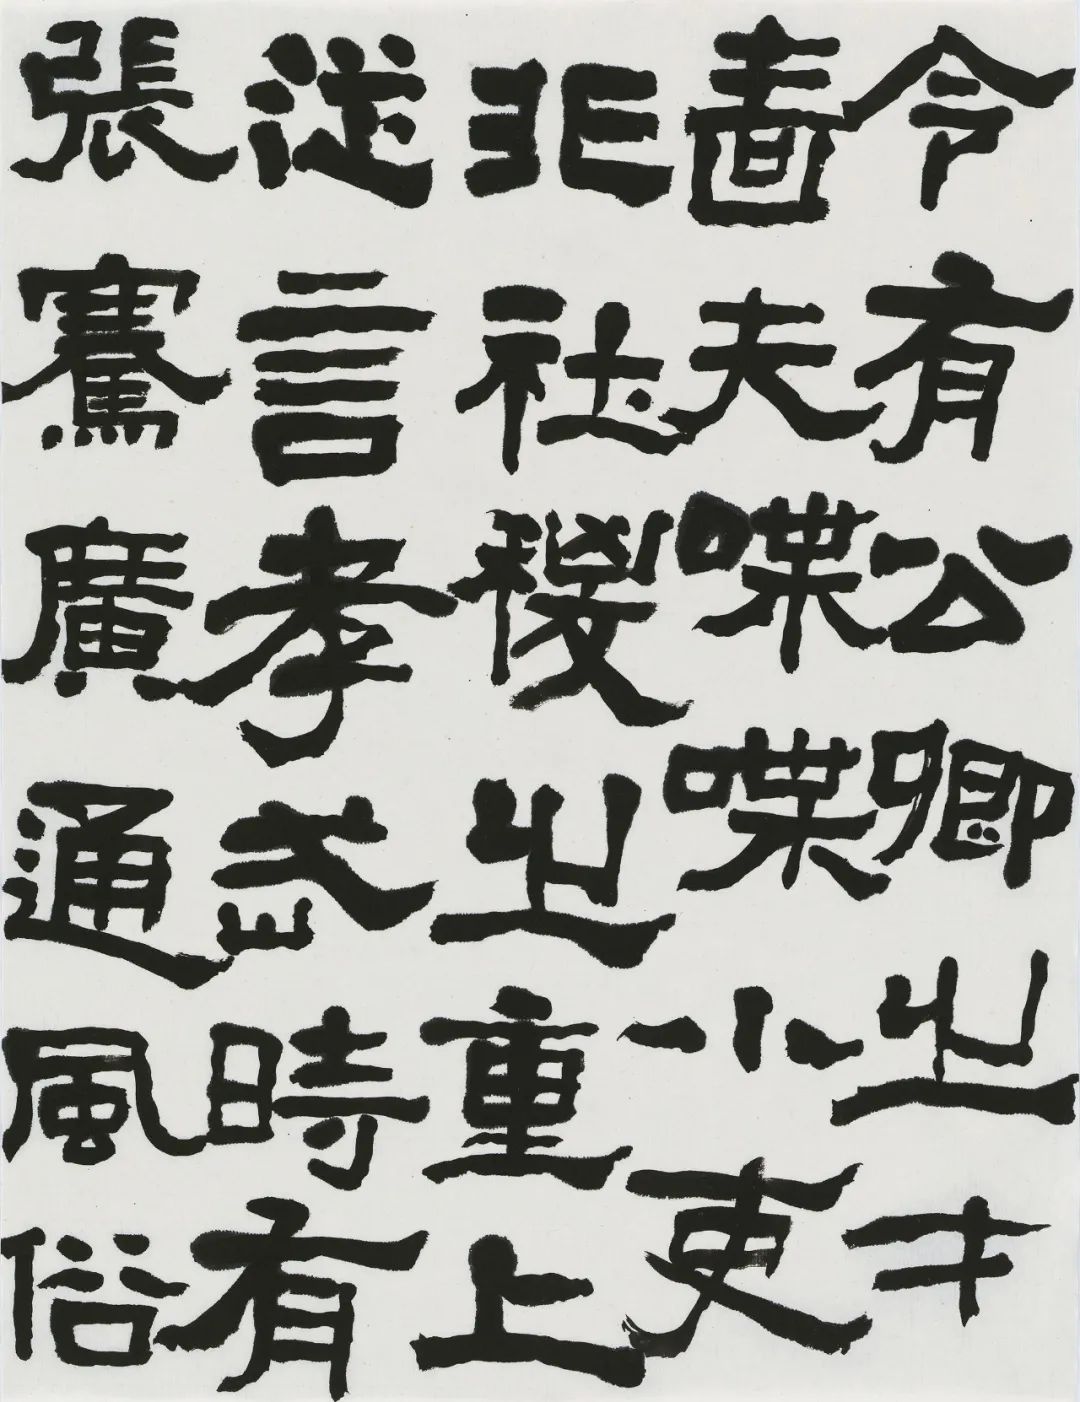 令有公卿之才
嗇夫喋喋小吏
非社稷之重上
從言孝武時有
張騫廣通風俗